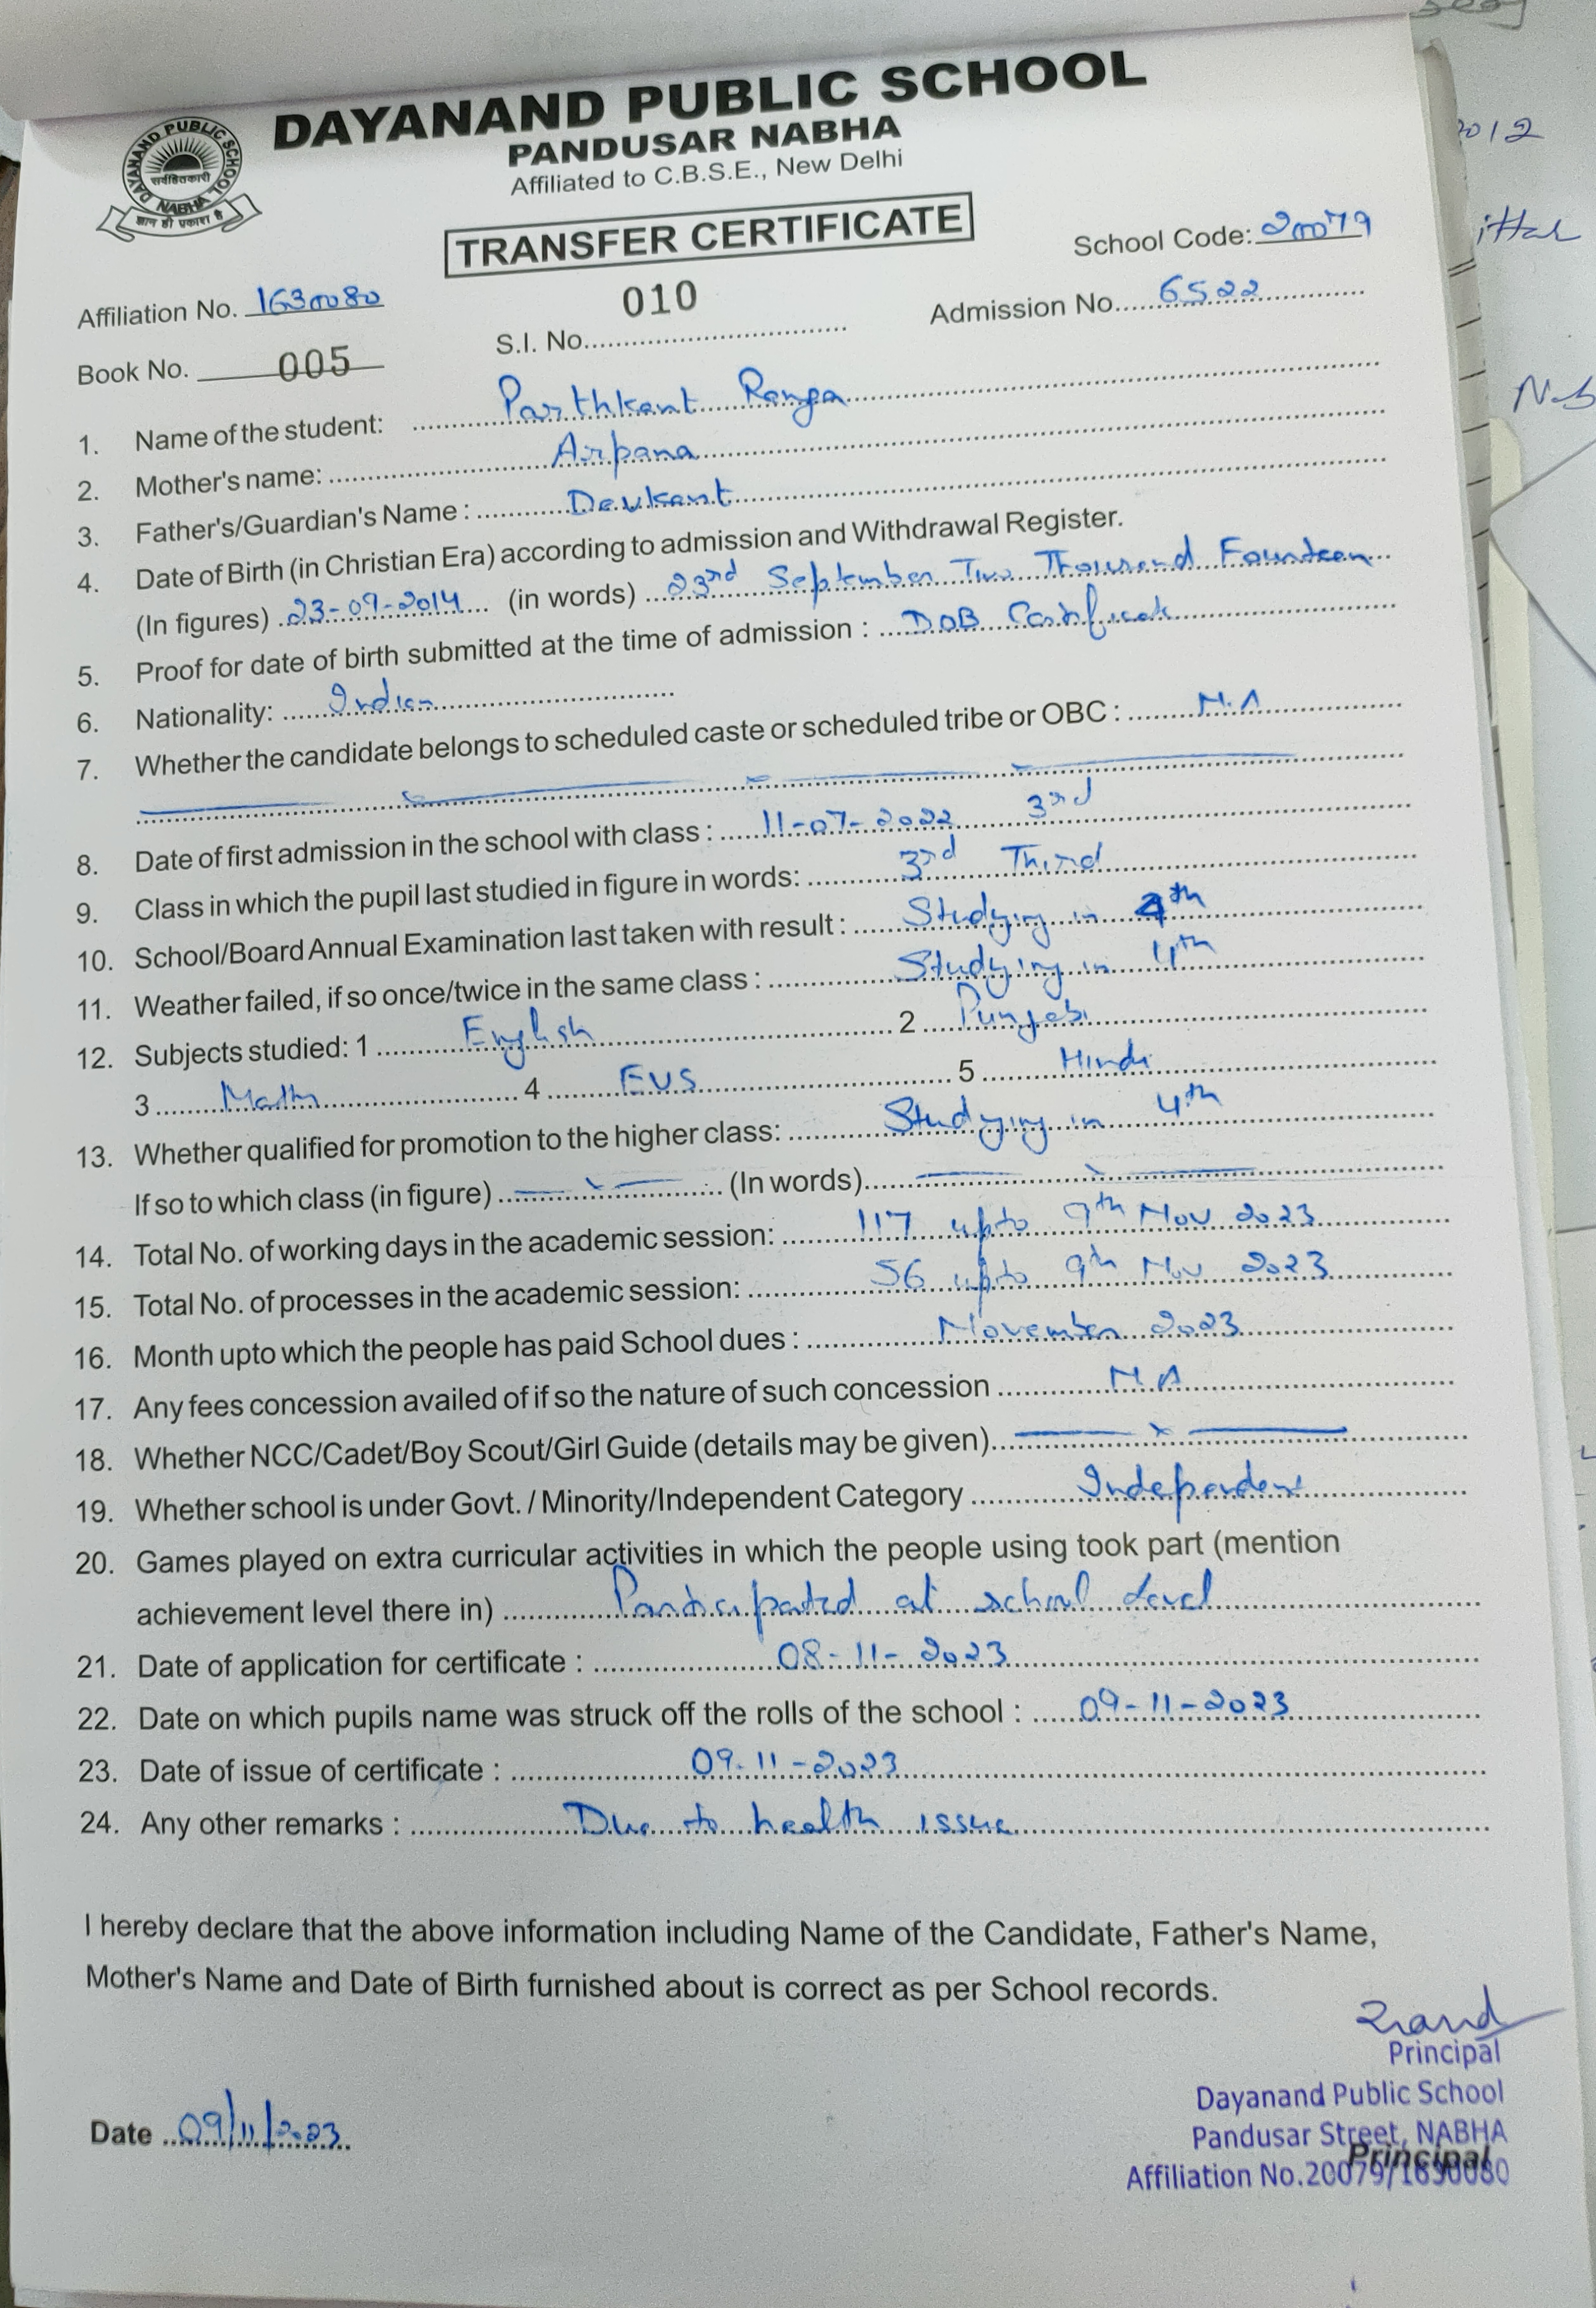 DAYANAND PUBLIC SCHOOL
PANDUSAR NABHA
Affiliated to C.B.S.E., New Delhi
DAYANAND PUBLIC SCHOOL
सर्वहितकारी
NABHA
ज्ञान ही प्रकाश है
TRANSFER CERTIFICATE
School Code: 20079
Affiliation No. 1630080
010
Admission No. 6522
Book No. 005
S.I. No.
1. Name of the student: Parthkant Ranga
2. Mother's name: Arpana
3. Father's/Guardian's Name : Devkant
4. Date of Birth (in Christian Era) according to admission and Withdrawal Register.
(In figures) 23-09-2014 (in words) 23rd September Two Thousand Fourteen
5. Proof for date of birth submitted at the time of admission : DOB Certificate
6. Nationality: Indian
7. Whether the candidate belongs to scheduled caste or scheduled tribe or OBC : N.A
8. Date of first admission in the school with class : 11-07-2022 3rd
9. Class in which the pupil last studied in figure in words: 3rd Third
10. School/Board Annual Examination last taken with result : Studying in 4th
11. Weather failed, if so once/twice in the same class : Studying in 4th
12. Subjects studied: 1 English 2 Punjabi
3 Math 4 EVS 5 Hindi
13. Whether qualified for promotion to the higher class: Studying in 4th
If so to which class (in figure) (In words)
14. Total No. of working days in the academic session: 117 upto 9th Nov 2023
15. Total No. of processes in the academic session: 56 upto 9th Nov 2023
16. Month upto which the people has paid School dues : November 2023
17. Any fees concession availed of if so the nature of such concession N.A
18. Whether NCC/Cadet/Boy Scout/Girl Guide (details may be given)
19. Whether school is under Govt. / Minority/Independent Category Independent
20. Games played on extra curricular activities in which the people using took part (mention
achievement level there in) Participated at school level
21. Date of application for certificate : 08-11-2023
22. Date on which pupils name was struck off the rolls of the school : 09-11-2023
23. Date of issue of certificate : 09-11-2023
24. Any other remarks : Due to health issue
I hereby declare that the above information including Name of the Candidate, Father's Name,
Mother's Name and Date of Birth furnished about is correct as per School records.
Principal
Dayanand Public School
Pandusar Street, NABHA
Principal
Affiliation No.20079/1630080
Date 09/11/2023
2012